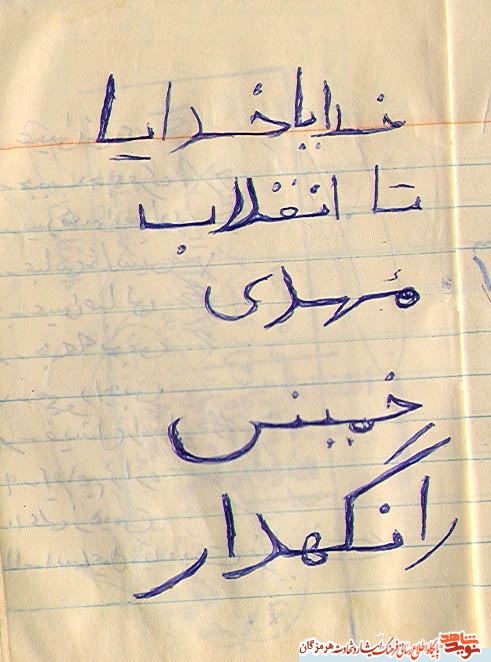 خدایا خدایا
تا انقلاب
مهدی
خمینی
را نگهدار
نوید شاهد
پایگاه اطلاع رسانی فرهنگ ایثار و شهادت هرمزگان